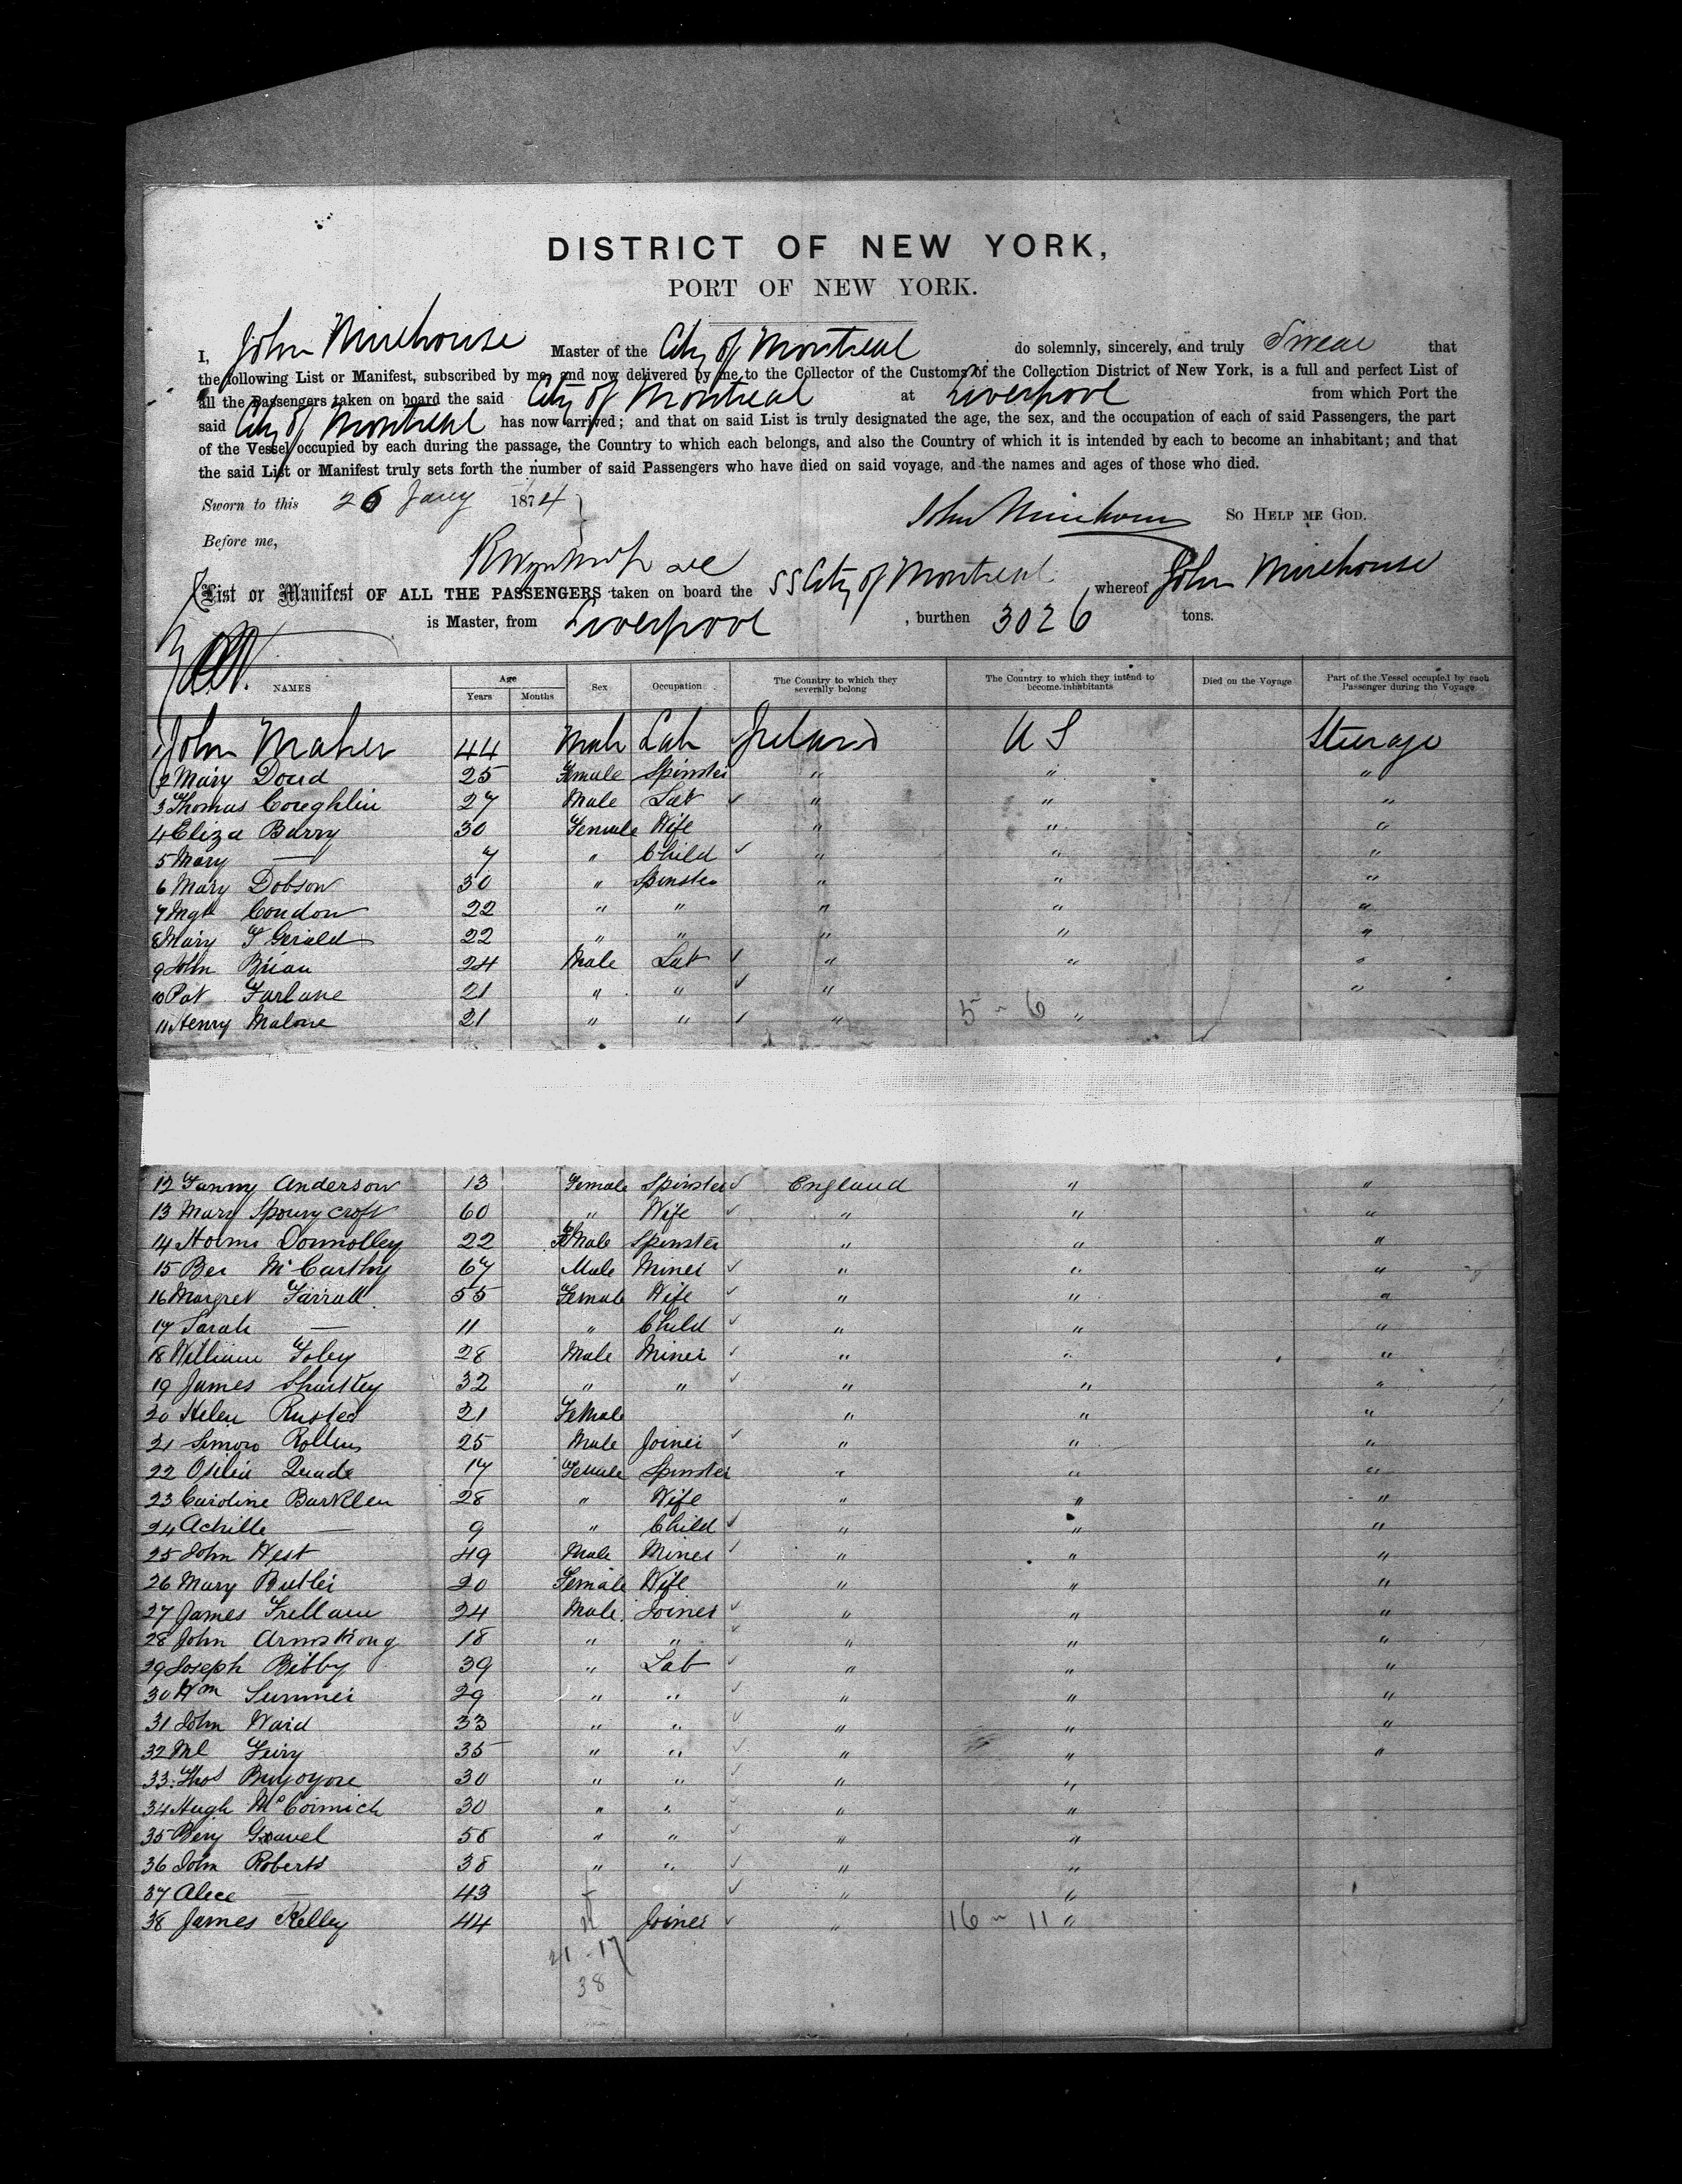 DISTRICT OF NEW YORK,
PORT OF NEW YORK.
I, John Mirehouse Master of the City of Montreal do solemnly, sincerely, and truly Swear that
the following List or Manifest, subscribed by me, and now delivered by me to the Collector of the Customs of the Collection District of New York, is a full and perfect List of
all the Passengers taken on board the said City of Montreal at Liverpool from which Port the
said City of Montreal has now arrived; and that on said List is truly designated the age, the sex, and the occupation of each of said Passengers, the part
of the Vessel occupied by each during the passage, the Country to which each belongs, and also the Country of which it is intended by each to become an inhabitant; and that
the said List or Manifest truly sets forth the number of said Passengers who have died on said voyage, and the names and ages of those who died.
Sworn to this 26 Jany 1874
John Mirehouse So Help me God.
Before me,
List or Manifest OF ALL THE PASSENGERS taken on board the SS City of Montreal whereof John Mirehouse
is Master, from Liverpool, burthen 3026 tons.
NAMES Age Years Months Sex Occupation The Country to which they severally belong The Country to which they intend to become inhabitants Died on the Voyage Part of the Vessel occupied by each Passenger during the Voyage
1 John Maher 44 Male Lab Ireland U S Steerage
2 Mary Doud 25 Female Spinster " " "
3 Thomas Coughlin 27 Male Lab " " "
4 Eliza Barry 30 Female Wife " " "
5 Mary — 7 " Child " " "
6 Mary Dobson 30 " Spinster " " "
7 Mgt Condon 22 " " " " "
8 Mary F Gerald 22 " " " " "
9 John Brian 24 Male Lab " " "
10 Pat Farlane 21 " " " " "
11 Henry Malone 21 " " " 5 - 6 "
12 Fanny Anderson 13 Female Spinster England " "
13 Mary 60 " Wife " " "
14 Donnolley 22 Female Spinster " " "
15 Ber McCarthy 67 Male Miner " " "
16 Margret Farrall 55 Female Wife " " "
17 Sarah — 11 " Child " " "
18 William Foley 28 Male Miner " " "
19 James Sharkey 32 " " " " "
20 Helen Rusted 21 Female " " "
21 Simon Rollins 25 Male Joiner " " "
22 Quade 17 Female Spinster " " "
23 Caroline Barklen 28 " Wife " " "
24 Achille — 9 " Child " " "
25 John West 49 Male Miner " " "
26 Mary Butler 20 Female Wife " " "
27 James Trellam 24 Male Joiner " " "
28 John Armstrong 18 " " " " "
29 Joseph Bibby 39 " Lab " " "
30 Wm Sumner 29 " " " " "
31 John Ward 33 " " " " "
32 Ml 35 " " " " "
33 Thos 30 " " " "
34 Hugh McCormick 30 " " " "
35 Benj Gravel 58 " " " "
36 John Roberts 38 " " " "
37 Alice — 43 " "
38 James Kelley 44 Joiner " 16 - 11 "
21 - 17
38